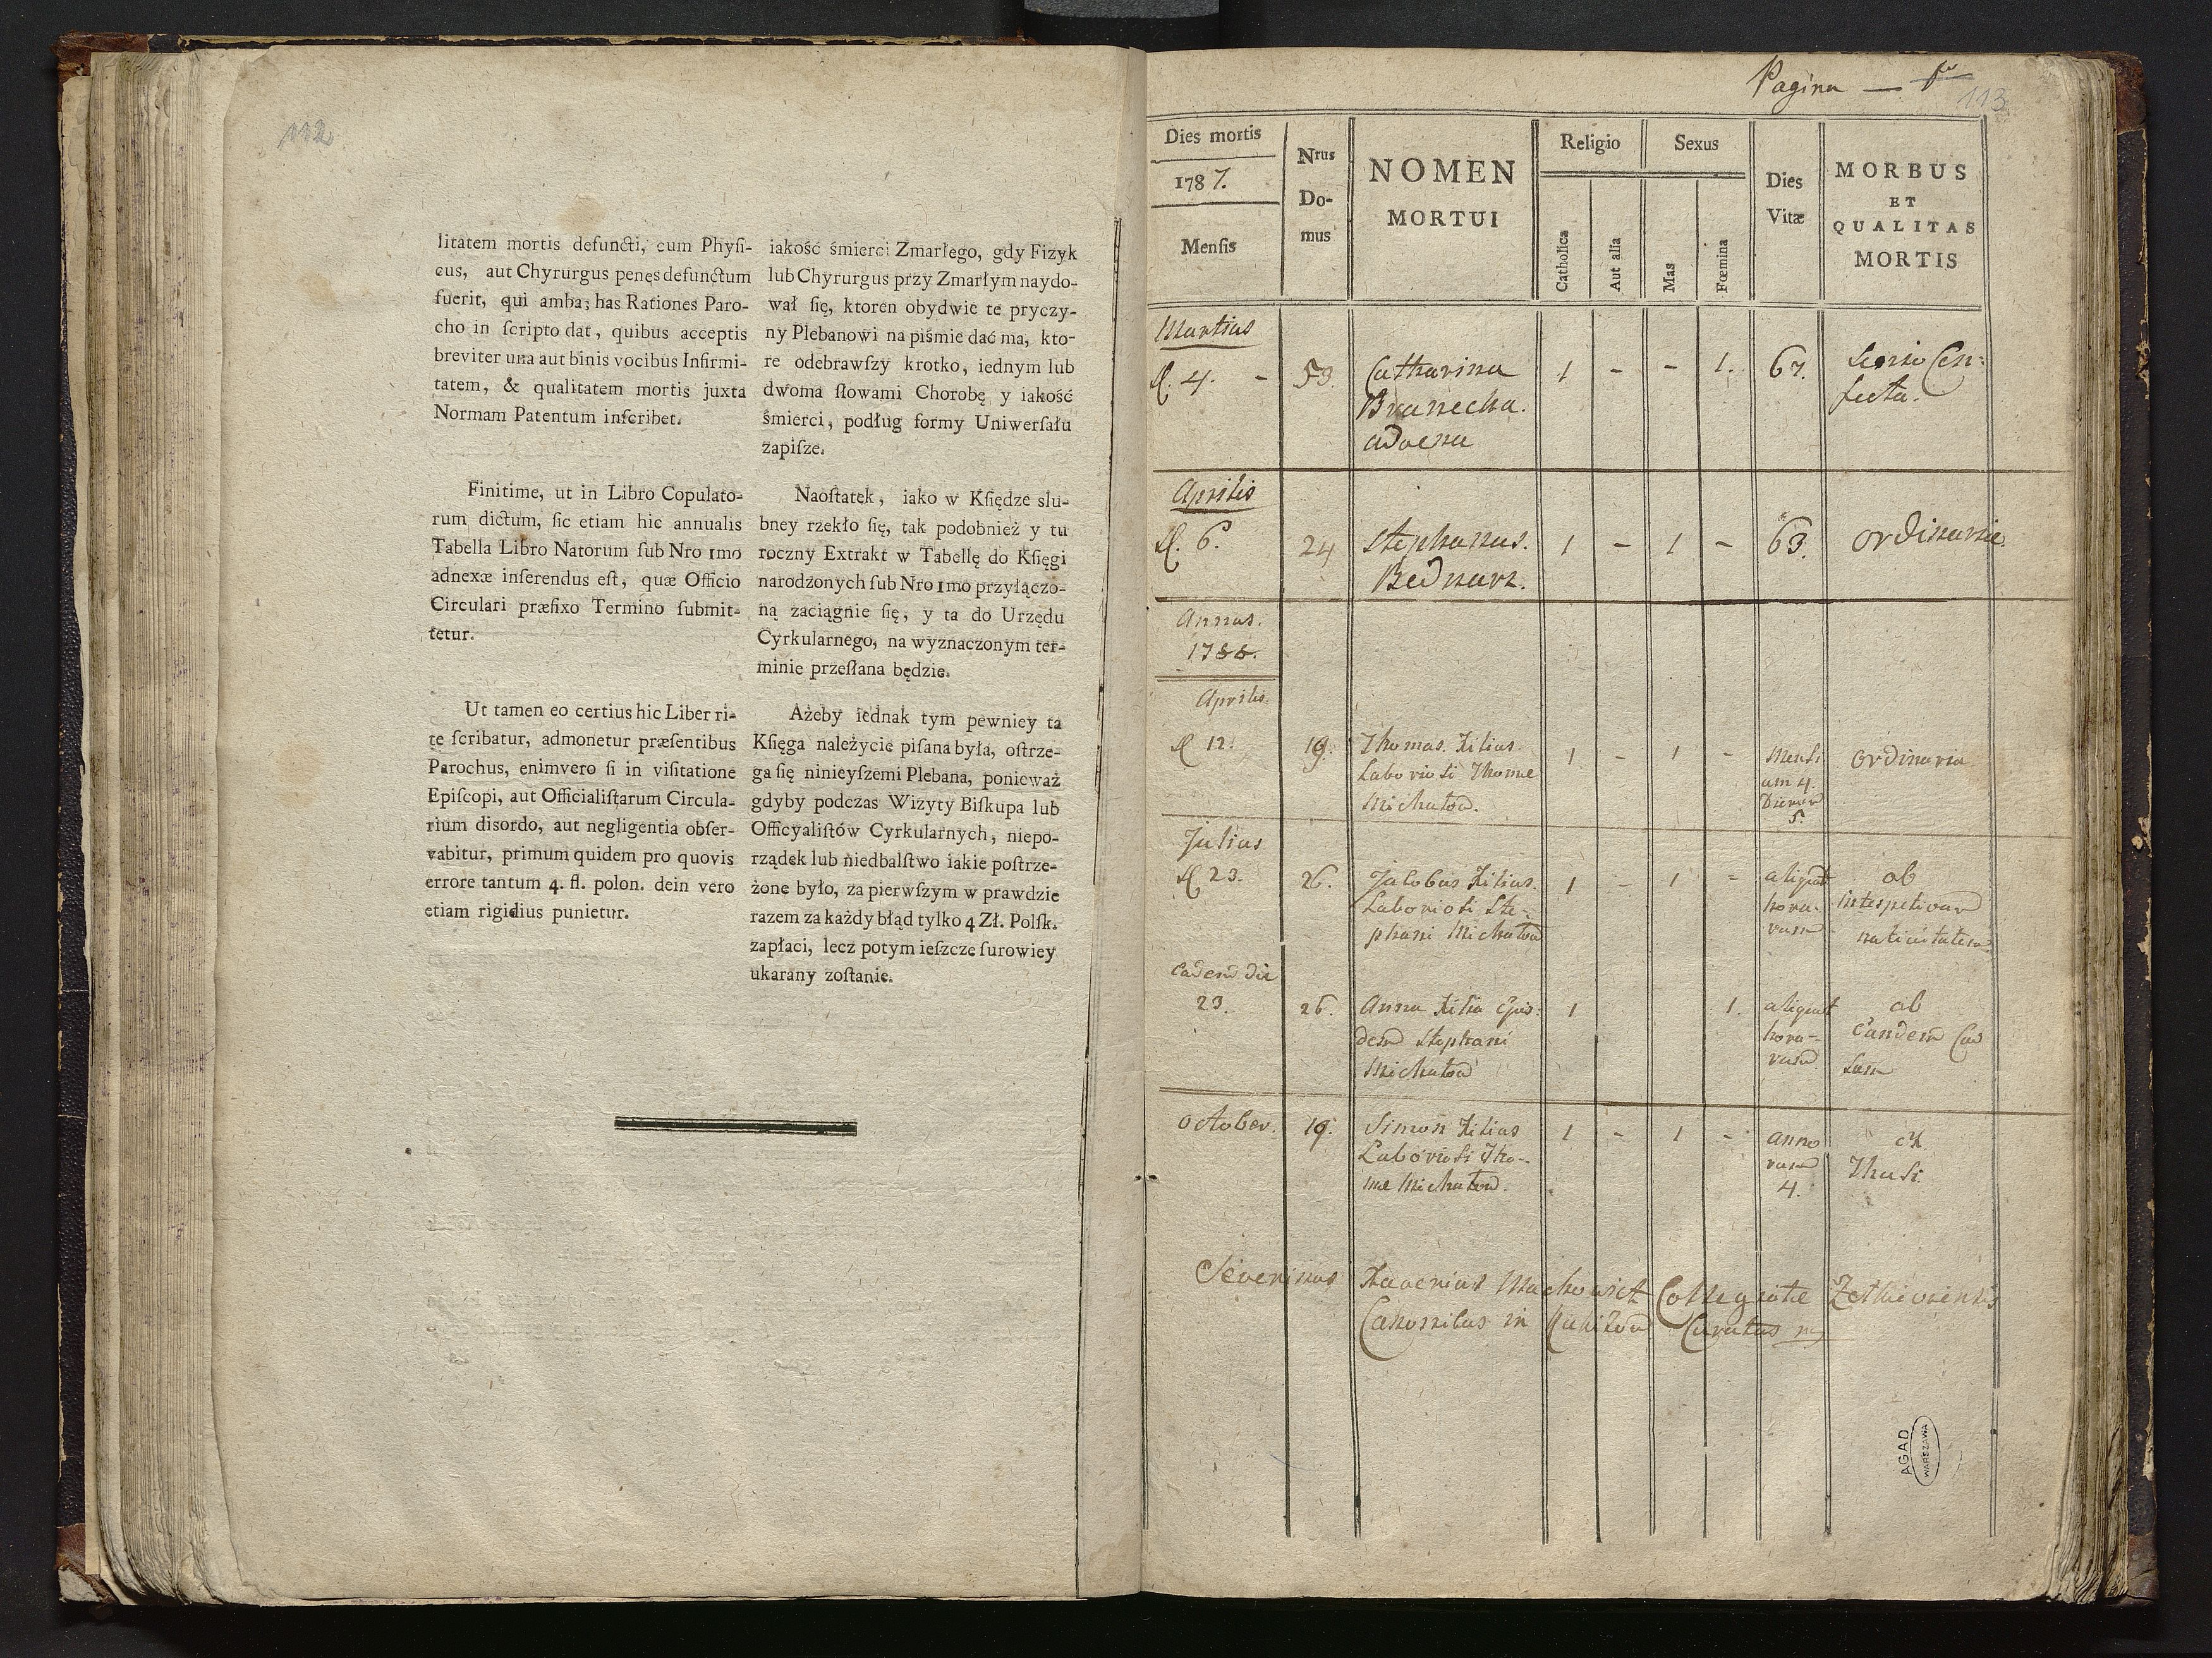 112
litatem mortis defuncti, cum Phyſi-
cus, aut Chyrurgus penęs defunctum
fuerit, qui amba; has Rationes Paro-
cho in ſcripto dat, quibus acceptis
breviter una aut binis vocibus Infirmi-
tatem, & qualitatem mortis juxta
Normam Patentum inſcribet.
Finitime, ut in Libro Copulato-
rum dictum, ſic etiam hic annualis
Tabella Libro Natorum ſub Nro 1mo
adnexæ inſerendus eſt, quæ Officio
Circulari præfixo Termino ſubmit-
tetur.
Ut tamen eo certius hic Liber ri-
te ſcribatur, admonetur præſentibus
Parochus, enimvero ſi in viſitatione
Epiſcopi, aut Officialiſtarum Circula-
rium disordo, aut negligentia obſer-
vabitur, primum quidem pro quovis
errore tantum 4. fl. polon. dein vero
etiam rigidius punietur.
iakość śmierci Zmarłego, gdy Fizyk
lub Chyrurgus przy Zmarłym naydo-
wał ſię, ktoren obydwie te pryczy-
ny Plebanowi na piśmie dać ma, kto-
re odebrawſzy krotko, iednym lub
dwoma ſłowami Chorobę y iakość
śmierci, podług formy Uniwerſału
zapiſze.
Naoſtatek, iako w Kſiędze slu-
bney rzekło ſię, tak podobnież y tu
roczny Extrakt w Tabellę do Kſięgi
narodzonych ſub Nro 1mo przyłączo-
ną zaciągnie ſię, y ta do Urzędu
Cyrkularnego, na wyznaczonym ter-
minie przeſłana będzie.
Ażeby iednak tym pewniey ta
Kſięga należycie piſana była, oſtrze-
ga ſię ninieyſzemi Plebana, ponieważ
gdyby podczas Wizyty Biſkupa lub
Officyaliſtów Cyrkularnych, niepo-
rządek lub niedbalſtwo iakie poſtrze-
żone było, za pierwſzym w prawdzie
razem za każdy błąd tylko 4 Zł. Polſk.
zapłaci, lecz potym ieſzcze ſurowiey
ukarany zoſtanie.
Pagina —
113
Dies mortis
1787.
Menſis
Nrus
Do-
mus
NOMEN
MORTUI
Religio
Catholica
Aut alia
Sexus
Mas
Fœmina
Dies
Vitæ
MORBUS
ET
QUALITAS
MORTIS
Martius
d. 4. - 53. Catharina 1 - - 1. 67. Senio Con=
Branecka. fecta.
advena
Aprilis
d. 6. 24 Stephanus. 1 - 1 - 63. ordinarie.
Bednarz.
Annus.
1786.
Aprilis.
d 12. 19. Thomas. Filius. 1 - 1 - Mensi ordinaria
Laboriosi Thomæ um 4.
Michatow. Dierum
5.
Julius
d 23. 26. Jacobus Filius. 1 - 1 - aliquot ob
Laboriosi Ste- hora-
phani Michatow rum nativitatem
Eadem die
23. 26. Anna Filia Ejus= 1 1. aliquot ob
dem Stephani hora- Eandem Cau
Michatow rum sam
October. 19. Simon Filius 1 - 1 - anno ex
Laboriosi Tho- rum Thusi.
mæ Michatow. 4.
Severinus Xaverius Collegiatæ
Canonicus in Curatus
AGAD
WARSZAWA